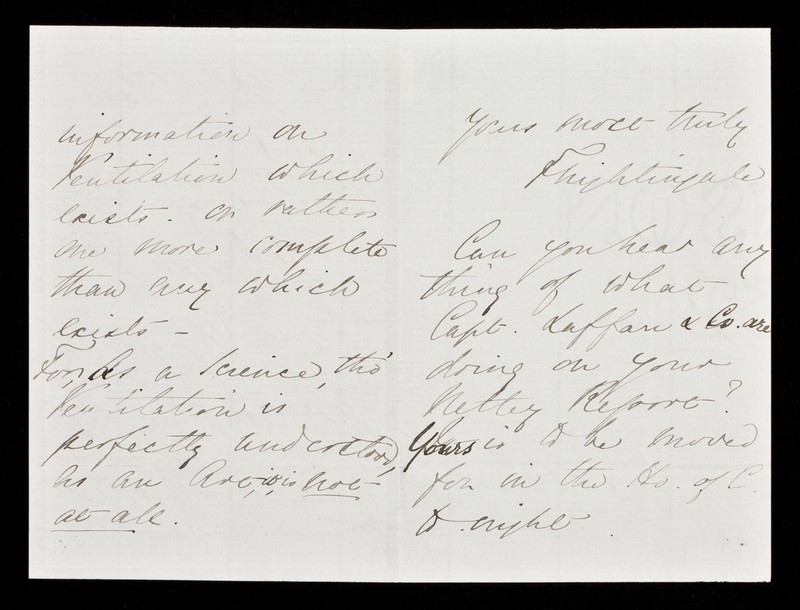 information on
Ventilation which
exists - or rather
one more complete
than any which
exists -
For, As a Science, tho'
Ventilation is
perfectly understood,
as an Art, it is not
at all.
Yours most truly
FNightingale
Can you hear any
thing of what
Capt. Laffan & Co. are
doing on your
Netley Report?
Yours is to be moved
for in the Ho. of C.
to-night.